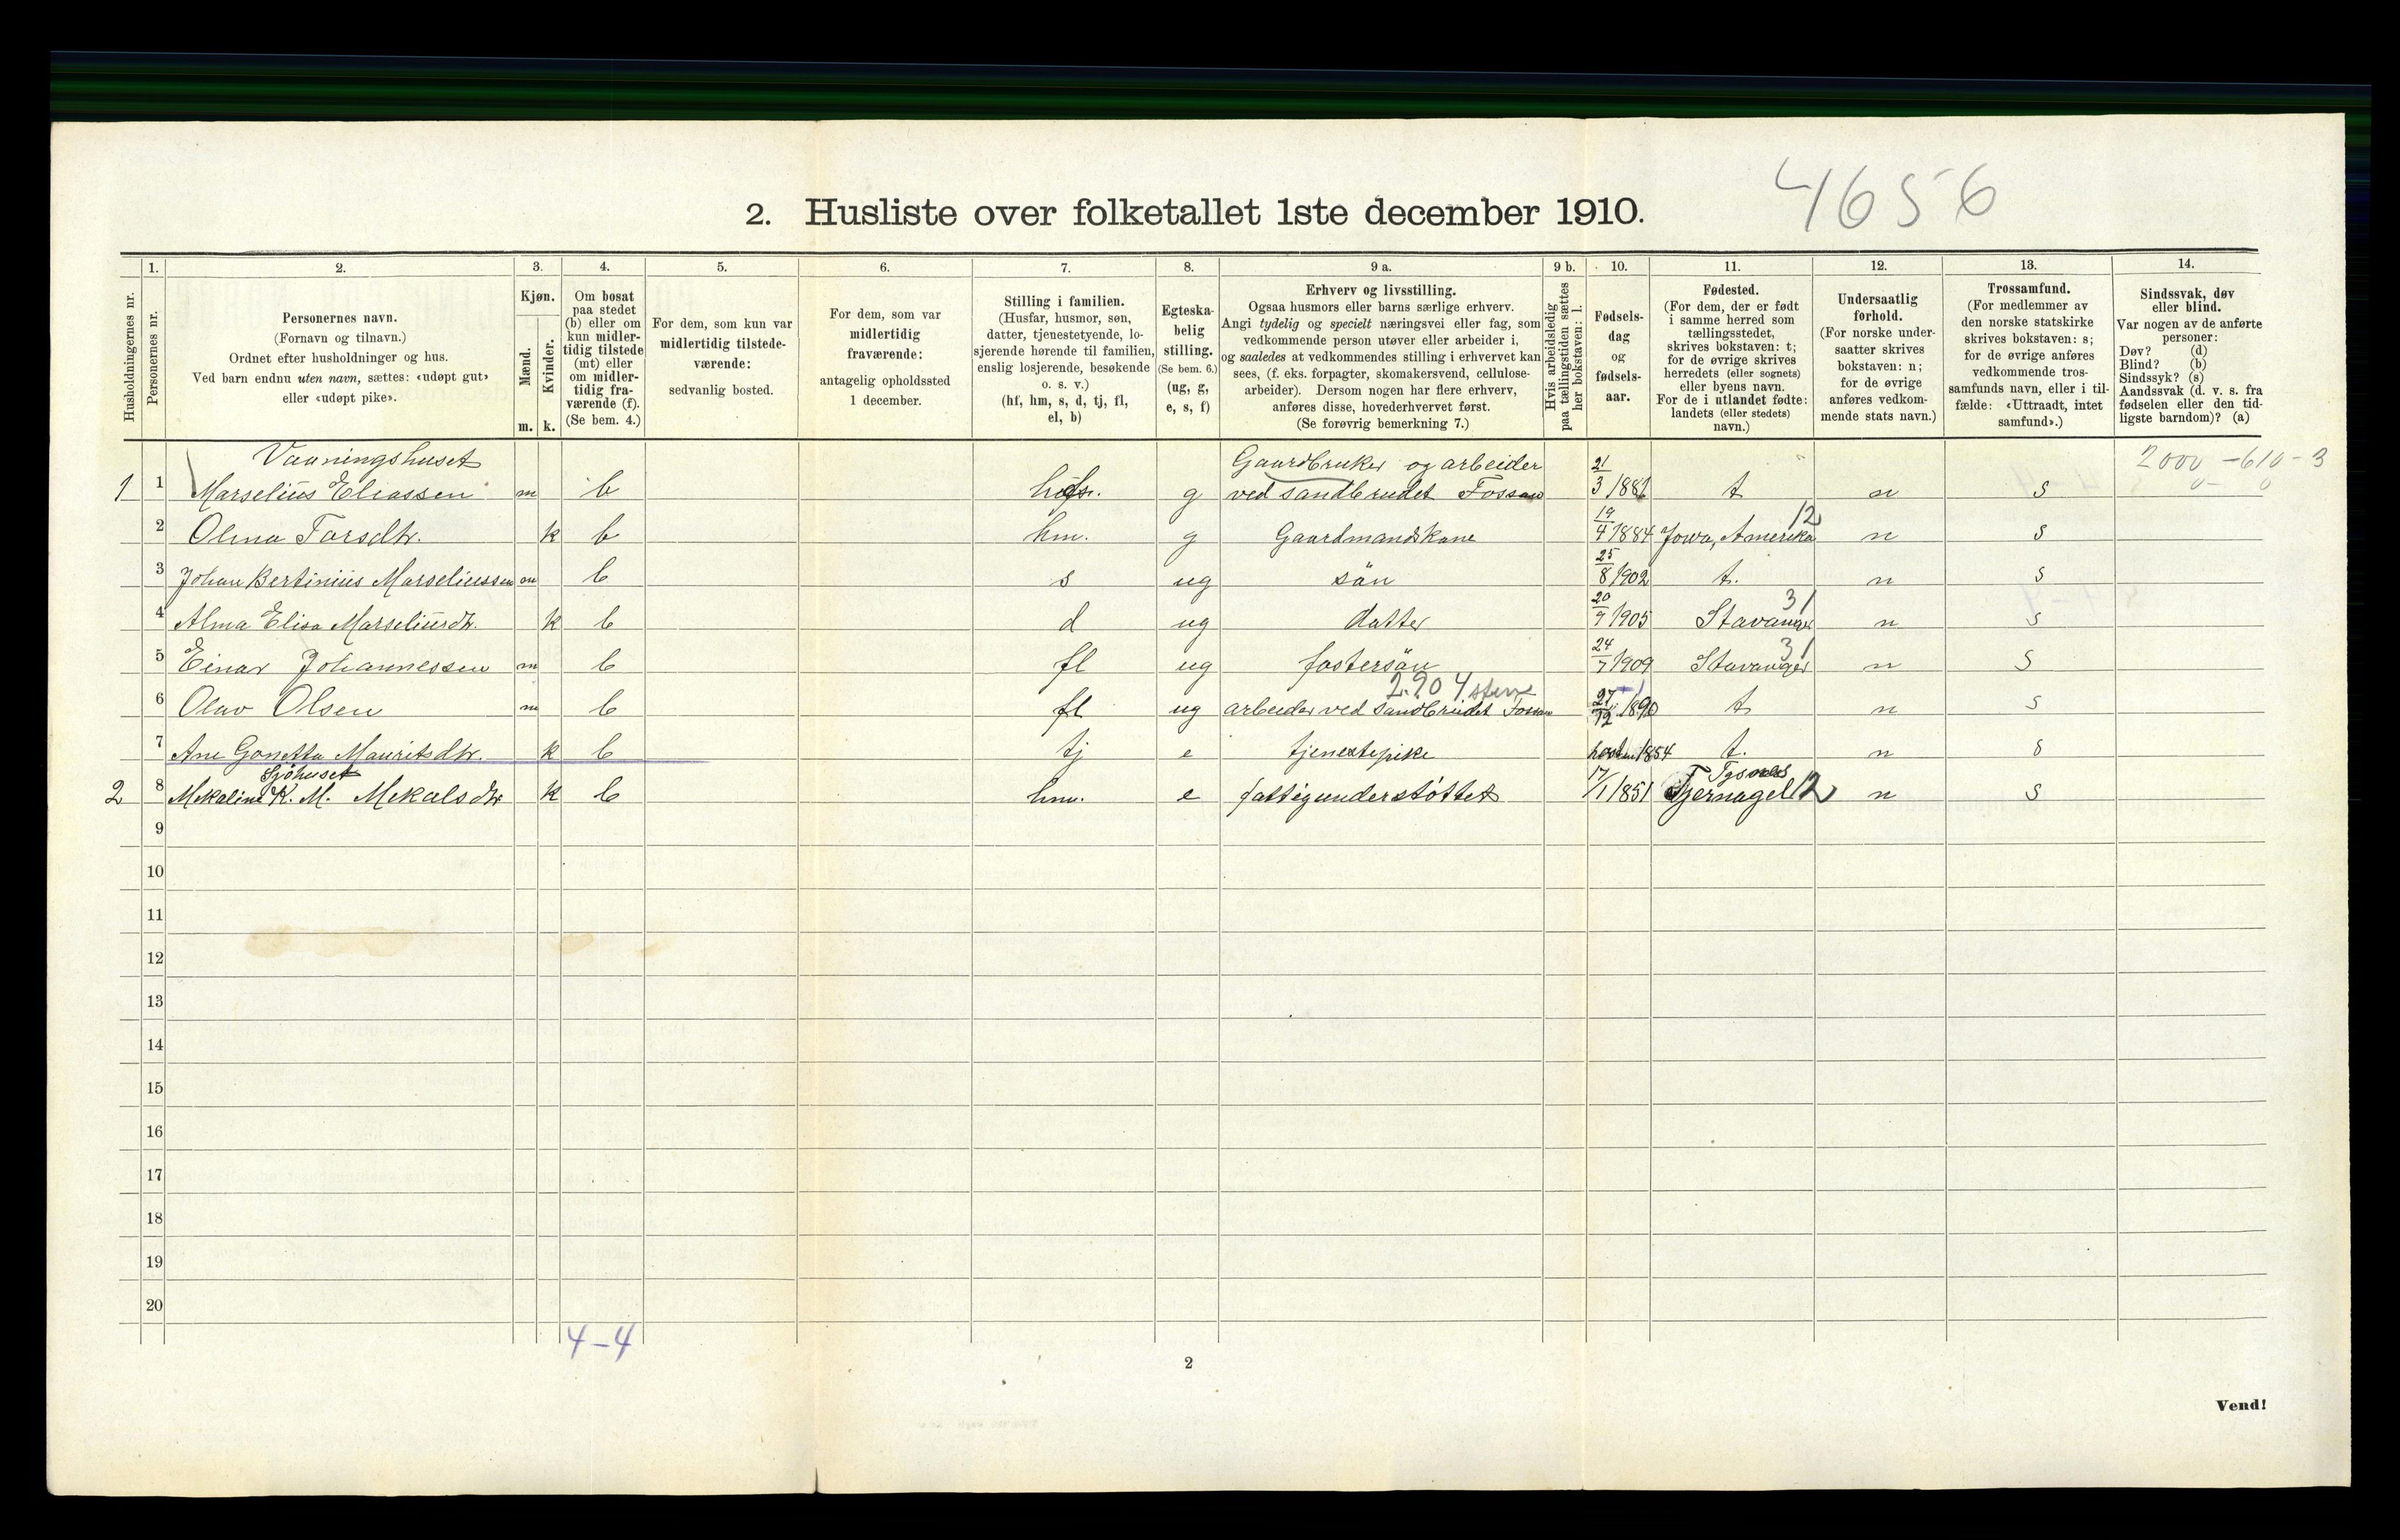 4656
2. Husliste over folketallet 1ste december 1910.
Husholdningernes nr.
1.
Personernes nr.
2.
Personernes navn.
(Fornavn og tilnavn.)
Ordnet efter husholdninger og hus.
Ved barn endnu uten navn, sættes: «udøpt gut»
eller «udøpt pike».
3.
Kjøn.
Mænd.
Kvinder.
m. k.
4.
Om bosat
paa stedet
(b) eller om
kun midler-
tidig tilstede
(mt) eller
om midler-
tidig fra-
værende (f).
(Se bem. 4.)
5.
For dem, som kun var
midlertidig tilstede-
værende:
sedvanlig bosted.
6.
For dem, som var
midlertidig
fraværende:
antagelig opholdssted
1 december.
7.
Stilling i familien.
(Husfar, husmor, søn,
datter, tjenestetyende, lo-
sjerende hørende til familien,
enslig losjerende, besøkende
o. s. v.)
(hf, hm, s, d, tj, fl,
el, b)
8.
Egteska-
belig
stilling.
(Se bem. 6.)
(ug, g,
e, s, f)
9 a.
Erhverv og livsstilling.
Ogsaa husmors eller barns særlige erhverv.
Angi tydelig og specielt næringsvei eller fag, som
vedkommende person utøver eller arbeider i,
og saaledes at vedkommendes stilling i erhvervet kan
sees, (f. eks. forpagter, skomakersvend, cellulose-
arbeider). Dersom nogen har flere erhverv,
anføres disse, hovederhvervet først.
(Se forøvrig bemerkning 7.)
9 b.
Hvis arbeidsledig
paa tællingstiden sættes
her bokstaven: l.
10.
Fødsels-
dag
og
fødsels-
aar.
11.
Fødested.
(For dem, der er født
i samme herred som
tællingsstedet,
skrives bokstaven: t;
for de øvrige skrives
herredets (eller sognets)
eller byens navn.
For de i utlandet fødte:
landets (eller stedets)
navn.)
12.
Undersaatlig
forhold.
(For norske under-
saatter skrives
bokstaven: n;
for de øvrige
anføres vedkom-
mende stats navn.)
13.
Trossamfund.
(For medlemmer av
den norske statskirke
skrives bokstaven: s;
for de øvrige anføres
vedkommende tros-
samfunds navn, eller i til-
fælde: «Uttraadt, intet
samfund».)
14.
Sindssvak, døv
eller blind.
Var nogen av de anførte
personer:
Døv? (d)
Blind? (b)
Sindssyk? (s)
Aandssvak (d. v. s. fra
fødselen eller den tid-
ligste barndom)? (a)
Vaaningshuset Gaardbruker og arbeider 2000 - 610 - 3
1 1 Marselius Eliassen m b g ved sandbrudet Fossan 21/3 1881 t n s
2 Olina Torsdtr. k b hm. g Gaardmandskone 19/4 1884 Jowa, Amerika 12 n s
3 Johan Bertinius Marseliussen m b s ug sön 25/8 1902 t. n s
4 Alma Elisa Marseliusdtr. k b d ug datter 20/9 1905 Stavanger 31 n s
5 Einar Johannessen m b fl ug fostersön 24/7 1909 Stavanger 31 n s
2.90 4
6 Olav Olsen m b fl ug arbeider ved sandbrudet Fossan 27/12 1890 t n s
7 Ane Gonetta Mauritsdtr. k b tj e tjenestepike 1854 t. n s
Sjöhuset
2 8 Mekaline K. M. Mekalsdtr k b hm. e fattigunderstöttet 17/1 1851 Tysnes Tjernagel 12 n s
9
10
11
12
13
14
15
16
17
18
19
20
4-4
2
Vend!